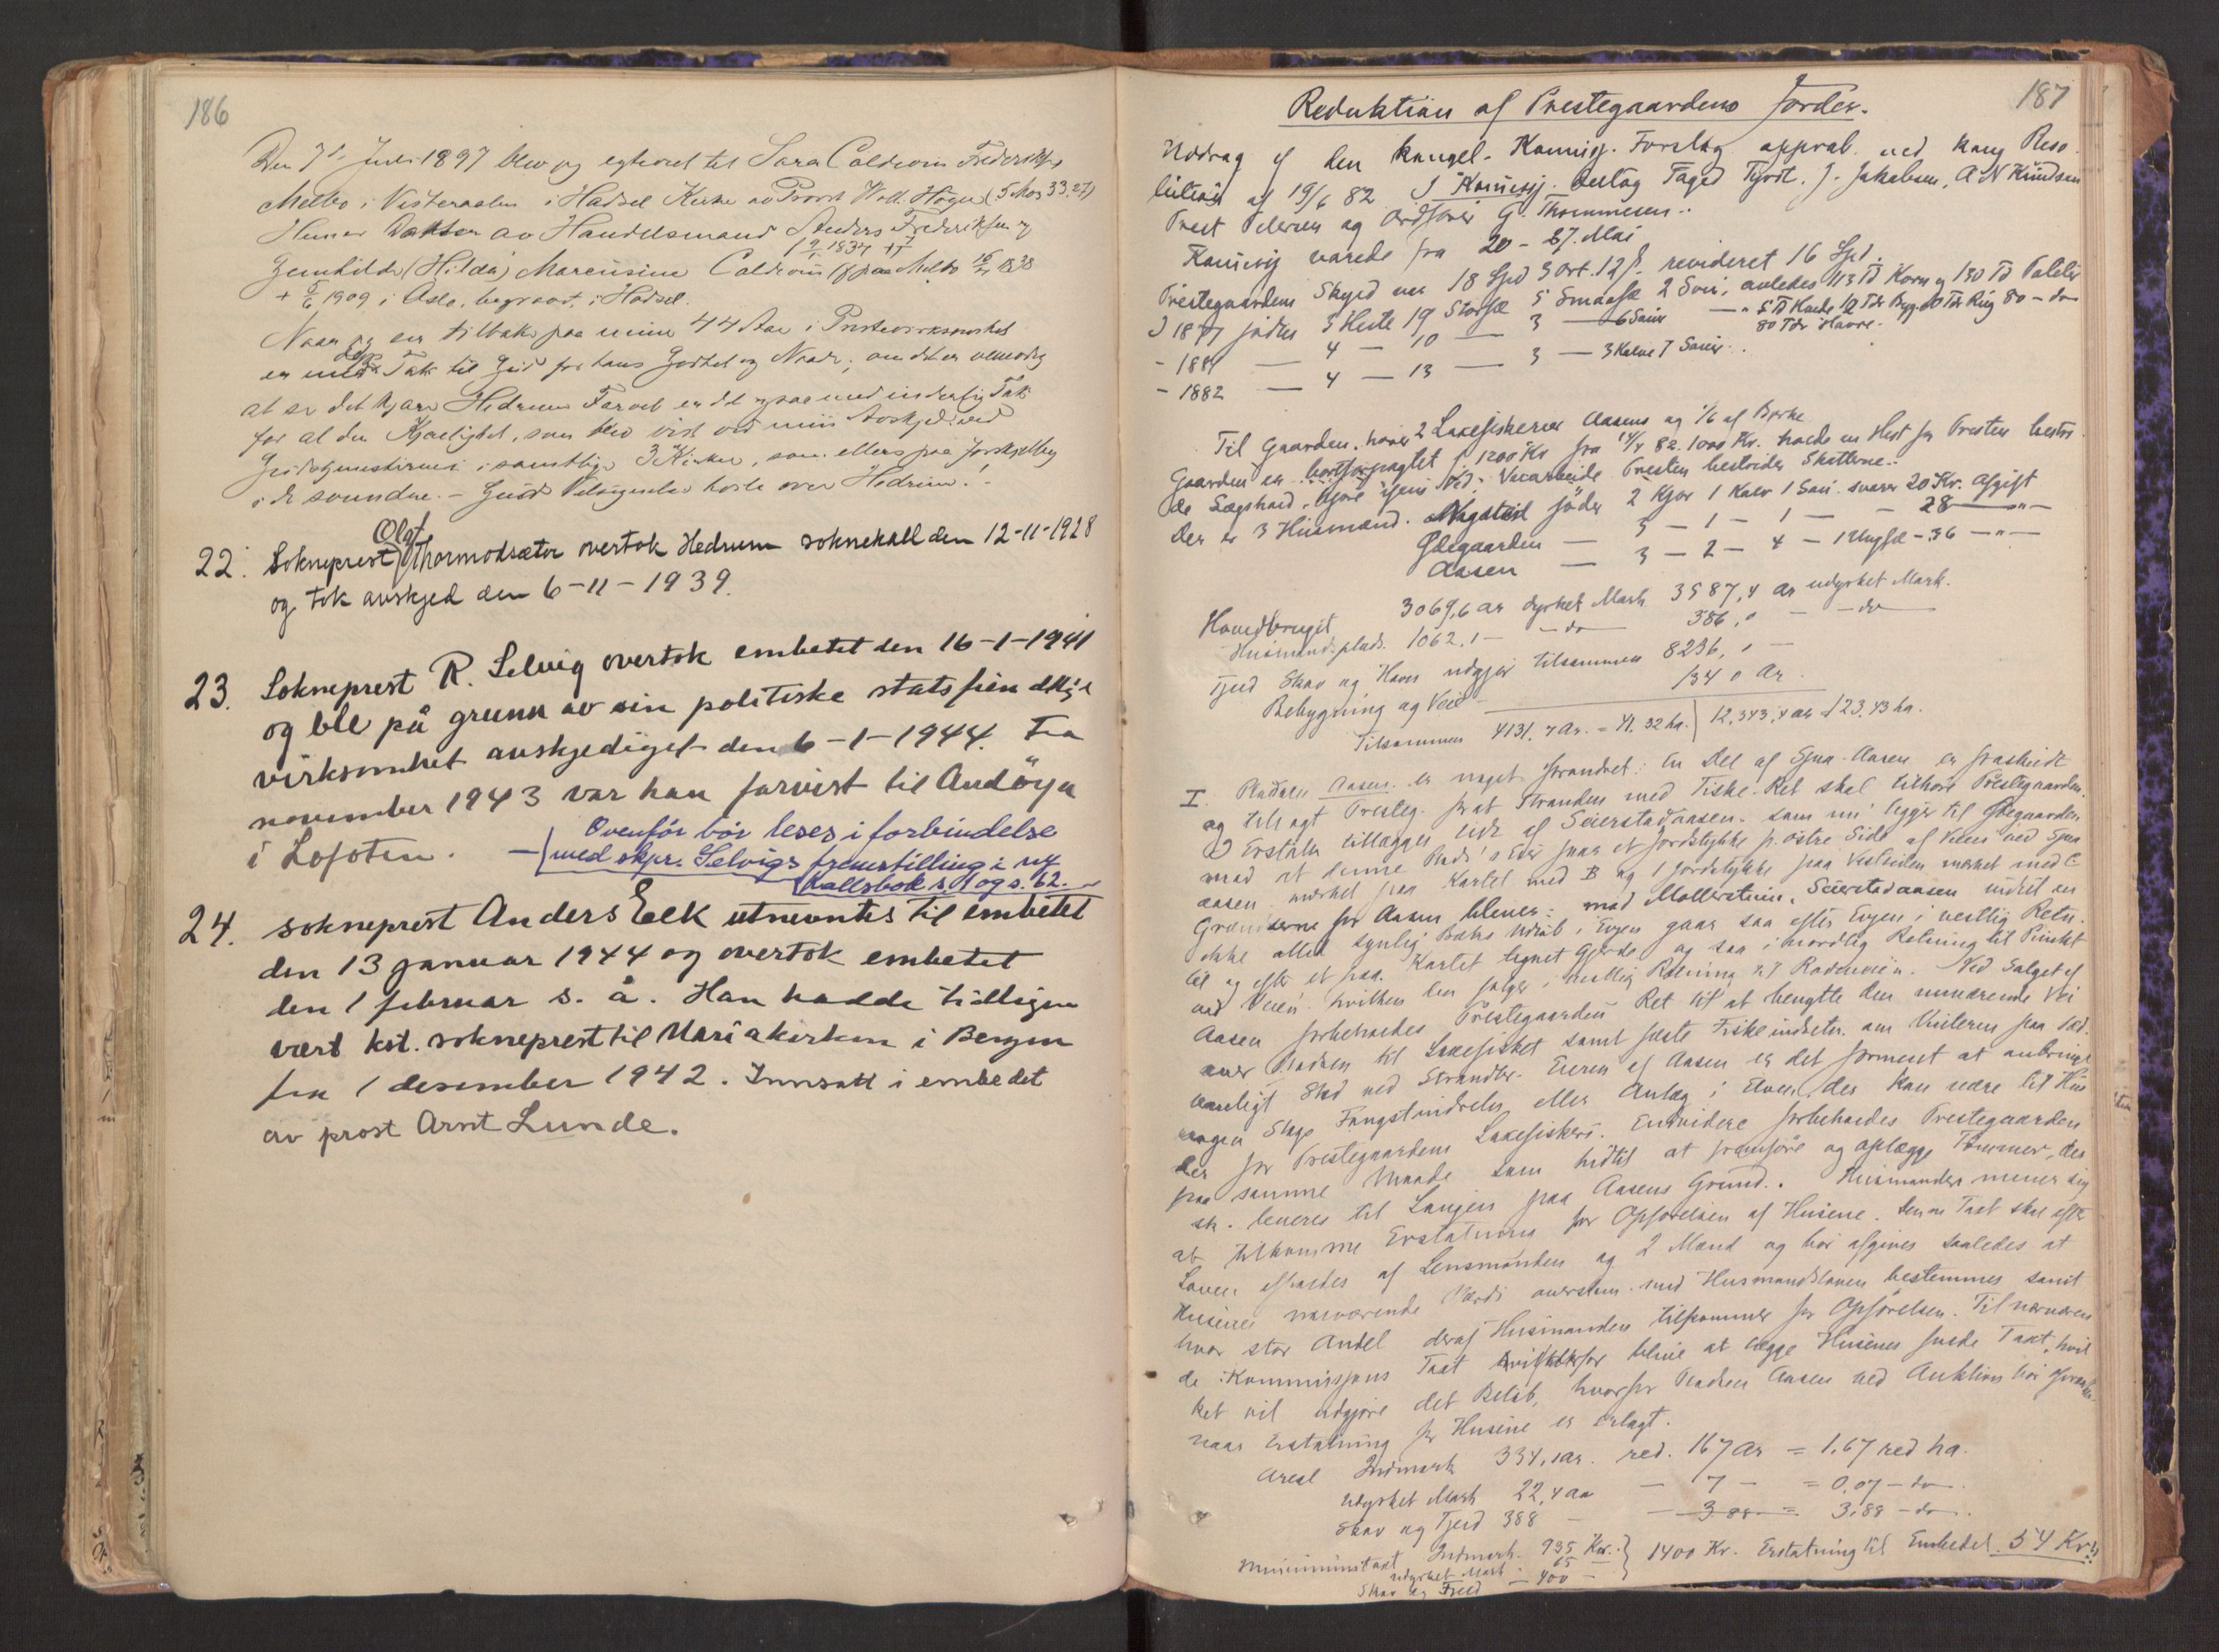 186
Den 7de Juli 1897 blev jeg egteviet til Sara Caldrom Frederiksen
Melbo i Vesteraalen i Hadsel Kirke av Provst (5 Mos 33.27)
Hun er Datter av Handelsmand Anders Frederiksen og
Gunhilda (Hilda) Marensine Caldrom
1909 i Oslo, begravet i Hadsel.
Naar jeg ser tilbake paa mine 44 Aar i Prestevirksomhet
er med Tak til Gud for hans Godhet og Naade; om det er vemodig
at si det kjære Hedrum Farvel er det ogsaa med inderlig Tak
for al den Kjærlighet, som blev vist ved min Avskjed ved
Gudstjenesterne i samtlige 3 Kirker, som ellers paa forskjellig
i de svundne. - Guds Velsignelse hvile over Hedrum!
22. Sokneprest Olaf Thormodsæter overtok Hedrum soknekall den 12-11-1928
og tok avskjed den 6-11-1939.
23. Sokneprest R. Selvig overtok embetet den 16-1-1941
og ble på grunn av sin politiske statsfiendtlige
virksomhet avskjediget den 6-1-1944. Fra
november 1943 var han forvist til Andöya
i Lofoten.
Ovenfor bör leses i forbindelse
med skpr. Selvigs fremstilling i ny
kallsbok s. 1 og s. 62.
24. sokneprest Anders Eek utnevntes til embetet
den 13 januar 1944 og overtok embetet
den 1 februar s. å. Han hadde tidligere
vært kst. sokneprest til Mariakirken i Bergen
fra 1 desember 1942. Innsatt i embedet
av prost Arnt Lunde.
187
Reduktion af Prestegaardens Jorder.
Uddrag af den kongel. Kommis. Forslag approb. ved kong Reso
lution af 19/6 82 I Kommisj. deltog Foged Tyrdt. J. Jakobsen, A N Knudsen
Prest Pedersen og Ordfører G. Thommesen.
Kommisj varede fra 20-27. Mai
Prestegaardens Skyld var 18 Spd 3 Ort. 12 ß. revideret 16 Spd.
I 1877 födes 3 Heste 19 Storfæ 5 Smaafæ 2 Svin, avledes 113 Td Korn og 130 Td Poteter
- 1881 — 4 — 10 — 3 — 6 Svin — 5 Td Hvede 12 Tdr Byg 10 Tdr Rug 80 - do
80 Tdr Havre.
- 1882 — 4 — 13 — 3 — 3 Kalve 7 Svin.
Til Gaarden hører 2 Laxefiskerier Aasens og 1/6 af Borke
Gaarden er bortforpagtet f 1200 Kr fra 14/4 82. 1000 Kr. holde en Hest for Presten bestri
de Sægshold, kjøre hjem Ved, Veiarbeide Presten bestrider Skatterne.
Der er 3 Husmænd. föder 2 Kjør 1 Kalv 1 Sau svarer 20 Kr. Afgift
Ødegaarden — 3 - 1 - 1 — 28 —"—
Aasen — 3 - 2 - 4 - 1 Ungfæ - 36 —"—
Hovedbruget 3069,6 ar dyrket Mark 3587,4 ar udyrket Mark.
Husmandsplads. 1062.1 - -do 386,0 - -do
Fjeld Skov og Havn udgjør tilsammen 8236,0 —
Bebygning og Veie 134 0 Ar.
Tilsammen 4131.7 Ar. = 41.32 ha. 12.343,4 ar = 123.43 ha.
I. Pladsen Aasen er noget forandret: En Del af Spua-Aasen er fraskildt
og tillagt Presteg. for at Stranden med Fiske-Ret skal tilhøre Prestegaarden.
I Erstatn tillægges lidt af Seierstadaasen. som nu ligger til Ødegaarden
mod at denne Plads's Eier faar et Jordstykke p. østre Side af Veien ved Spua
aasen mærket paa Kartet med B og 1 Jordstykke paa Vestsiden mærket med C
Grændserne for Aasen bliver: mod Mollerstuen, Seierstadaasen indtil en
ikke altid synlig Bæks Udløb i Evjen gaar saa efter Evjen i vestlig Retn.
til og efter et paa Kartet tegnet Gjerde og saa i nordlig Retning til Punkt
ved Veien hvilken den følger i vestlig Retning til Rodeveien. Ved Salget af
Aasen forbeholdes Prestegaarden Ret til at benytte den nuværende Vei
over Pladsen til Laxefisket samt fæste Fiskeindretn. om Vinteren paa sæd.
vanligt Sted ved Strandbr. Eieren af Aasen er det formeent at anbringe
nogen Slags Fangstindretn eller Anlæg i Elven, der kan være til Hin
der for Prestegaardens Laxefiskeri. Endvidere forbeholdes Prestegaarden
paa samme Maade som hidtil at fremføre og oplægge Tømmer, der
sk. leveres til Laugen paa Aasens Grund. Husmanden mener sig
at tilkomme Erstatning for Opførelsen af Husene. Denne Taxt skal efter
Loven afholdes af Lensmanden og 2 Mænd og bør afgives saaledes at
Husenes nuværende Værdi overenstem. med Husmandsloven bestemmes samt
hvor stor Andel deraf Husmanden tilkommer for Opførelsen. Til nærværen
de Kommissjons Taxt bliver at lægge Husenes fulde Taxt, hvil
ket vil udgjøre det Beløb, hvorfor Pladsen Aasen ved Auktion bør
naar Erstatning for Husene er erlagt.
Areal Indmark 334,1 ar. red. 167 ar = 1.67 red ha.
Udyrket Mark 22,4 ar — 7 — = 0.07 - do
Skov og Fjeld 388 — — 388 = 3.88 - do
Minimumstaxt Indmark. 935 Kr. } 1400 Kr. Erstatning til Embedet 54 Kr.
Udyrket Mark 65 —
Skov og Fjeld — 400 —